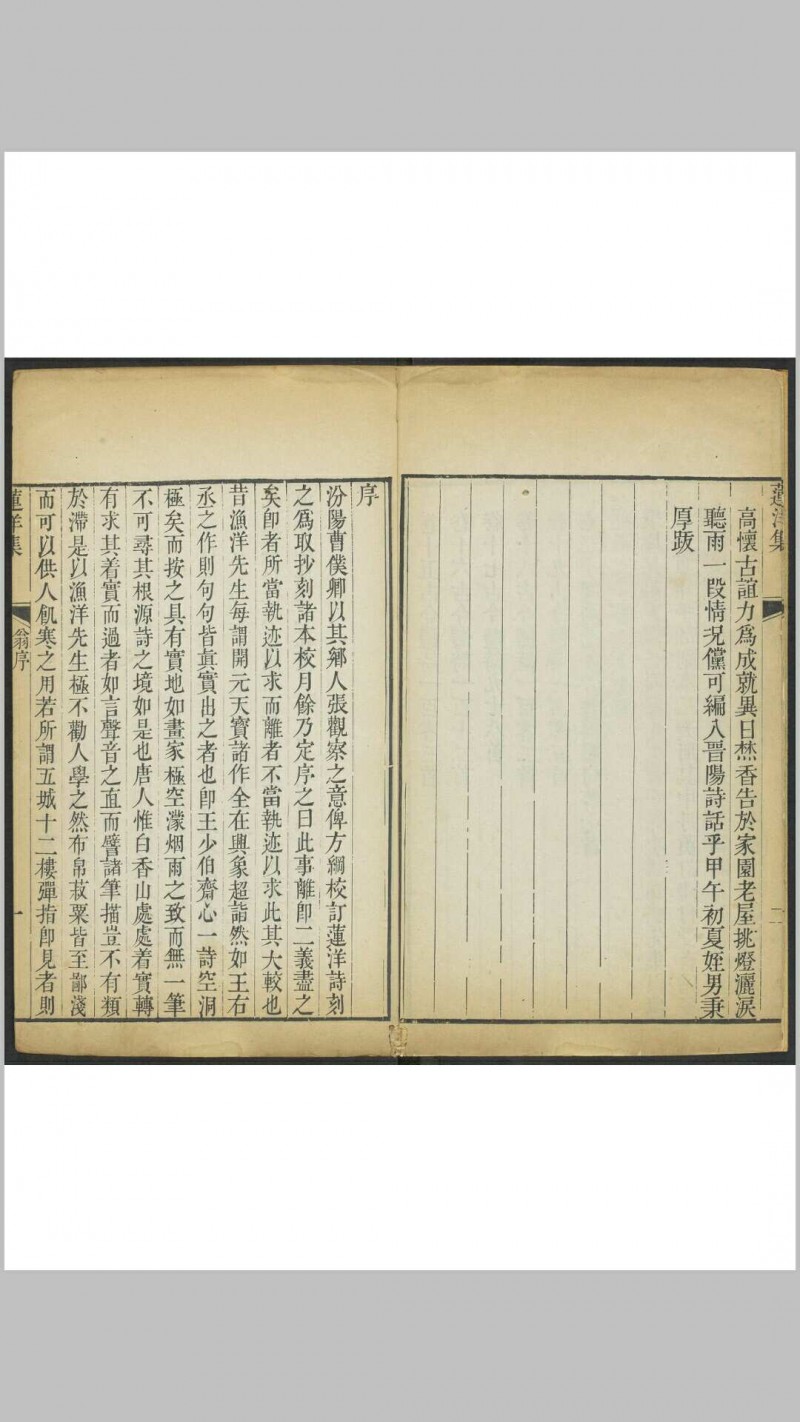 蓮洋集
二
高懷古誼力為成就異日焚香告於家園老屋挑燈灑淚
聽雨一段情况儻可編入晋陽詩話乎甲午初夏姪男秉
厚跋
序
汾陽曹僕卿以其鄉人張觀察之意俾方綱校訂蓮洋詩刻
之為取抄刻諸本校月餘乃定序之曰此事離卽二義盡之
矣卽者所當執迹以求而離者不當執迹以求此其大較也
昔漁洋先生每謂開元天寶諸作全在興象超詣然如王右
丞之作則句句皆眞實出之者也卽王少伯齋心一詩空洞
極矣而按之具有實地如畫家極空濛烟雨之致而無一筆
不可尋其根源詩之境如是也唐人惟白香山處處着實轉
有求其着實而過者如言聲音之直而譬諸筆描豈不有類
於滯是以漁洋先生極不勸人學之然布帛菽粟皆至鄙淺
而可以供人飢寒之用若所謂五城十二樓彈指卽見者則
蓮洋集
翁序
一